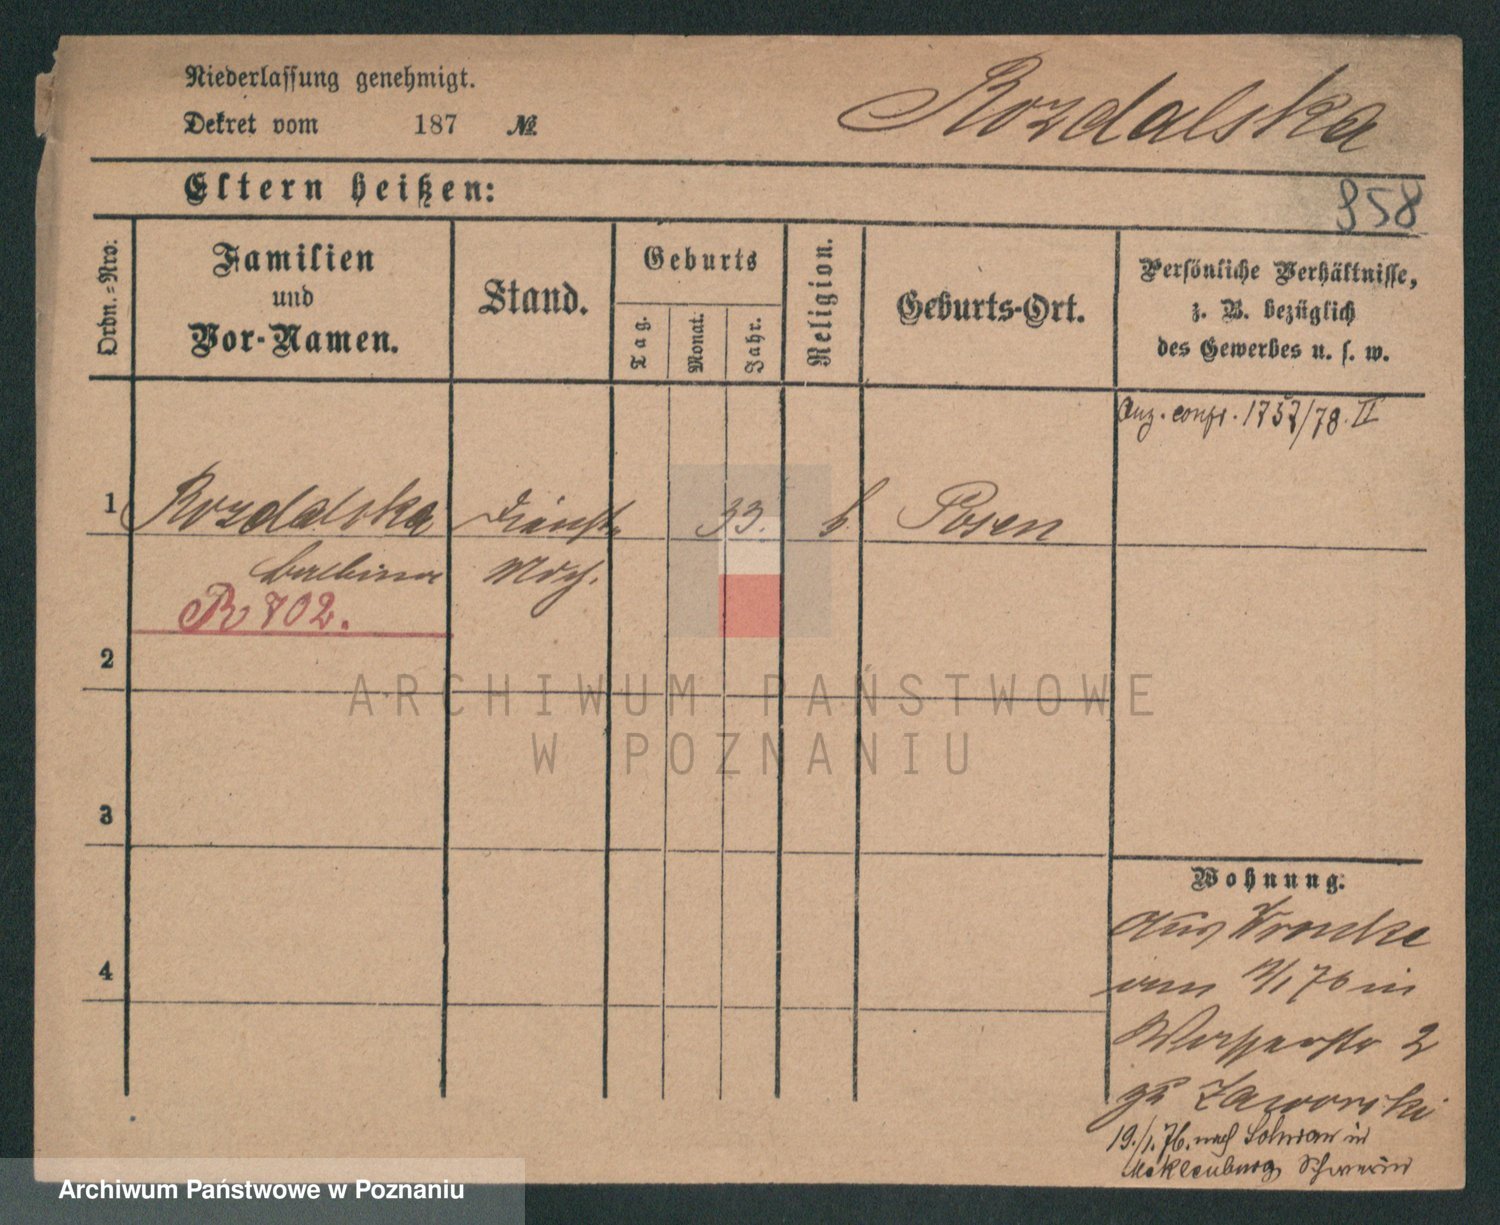 Niederlassung genehmigt.
Dekret vom 187 №
Rozdalska
Eltern heißen:
958
Ordn.-Nro.
Familien
und
Vor-Namen.
Stand.
Geburts
Tag.
Monat.
Jahr.
Religion.
Geburts-Ort.
Persönliche Verhältnisse,
z. B. bezüglich
des Gewerbes u. s. w.
Anz. confr. 1737/78. II
1 Rozdalska Dienst 33. k. Posen
balbina Mdch.
R 702.
2
ARCHIWUM PAŃSTWOWE
W POZNANIU
3
4
Wohnung.
aus Wronke
/1 76 in
Wasserstr 2
Jaworski
19./1.76. nach in
Mecklenburg Schwerin
Archiwum Państwowe w Poznaniu